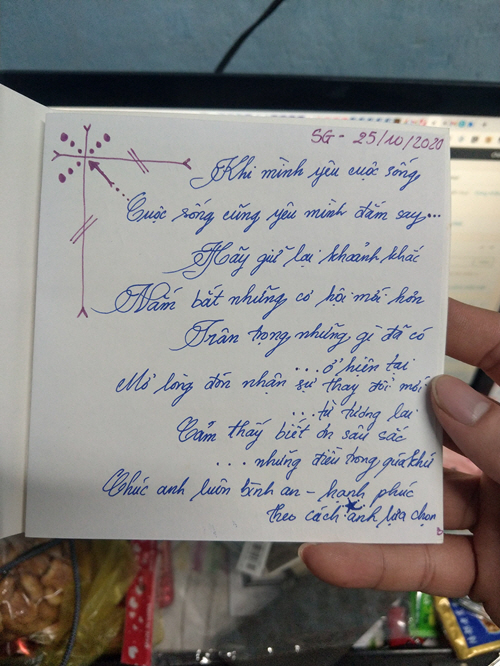 SG - 25/10/2020
Khi mình yêu cuộc sống
Cuộc sống cũng yêu mình đắm say...
Hãy giữ lại khoảnh khắc
Nắm bắt những cơ hội mới hơn
Trân trọng những gì đã có
...ở hiện tại
Mở lòng đón nhận sự thay đổi mới
...từ tương lai
Cảm thấy biết ơn sâu sắc
...những điều trong quá khứ
Chúc anh luôn bình an - hạnh phúc
theo cách anh lựa chọn